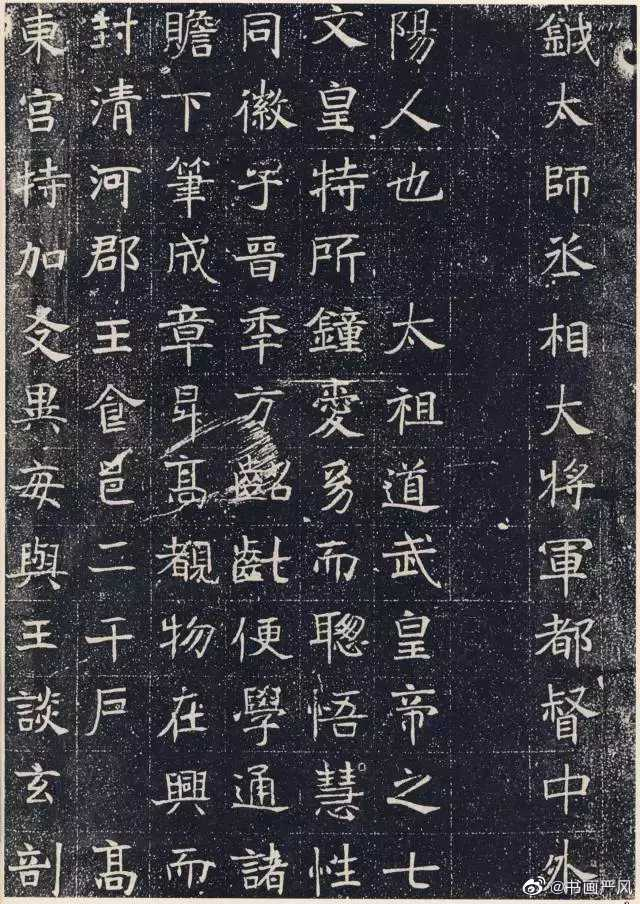 鉞太師丞相大將軍都督中外
陽人也 太祖道武皇帝之七
文皇特所鐘愛幼而聰悟慧性
同徽子晉年方齠齔便學通諸
贍下筆成章昇高覩物在興而
封清河郡王食邑二千戶 高
東宮特加友異每與王談玄剖
@书画严风